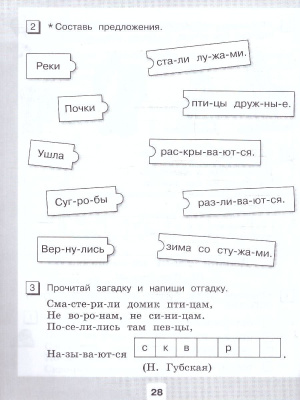 2 * Составь предложения.
Реки
ста-ли лу-жа-ми.
Почки
пти-цы друж-ны-е.
Ушла
рас-кры-ва-ют-ся.
Суг-ро-бы
раз-ли-ва-ют-ся.
Вер-ну-лись
зима со сту-жа-ми.
3 Прочитай загадку и напиши отгадку.
Сма-сте-ри-ли домик пти-цам,
Не во-ро-нам, не си-ни-цам.
По-се-ли-лись там пев-цы,
На-зы-ва-ют-ся с к в р
(Н. Губская)
28